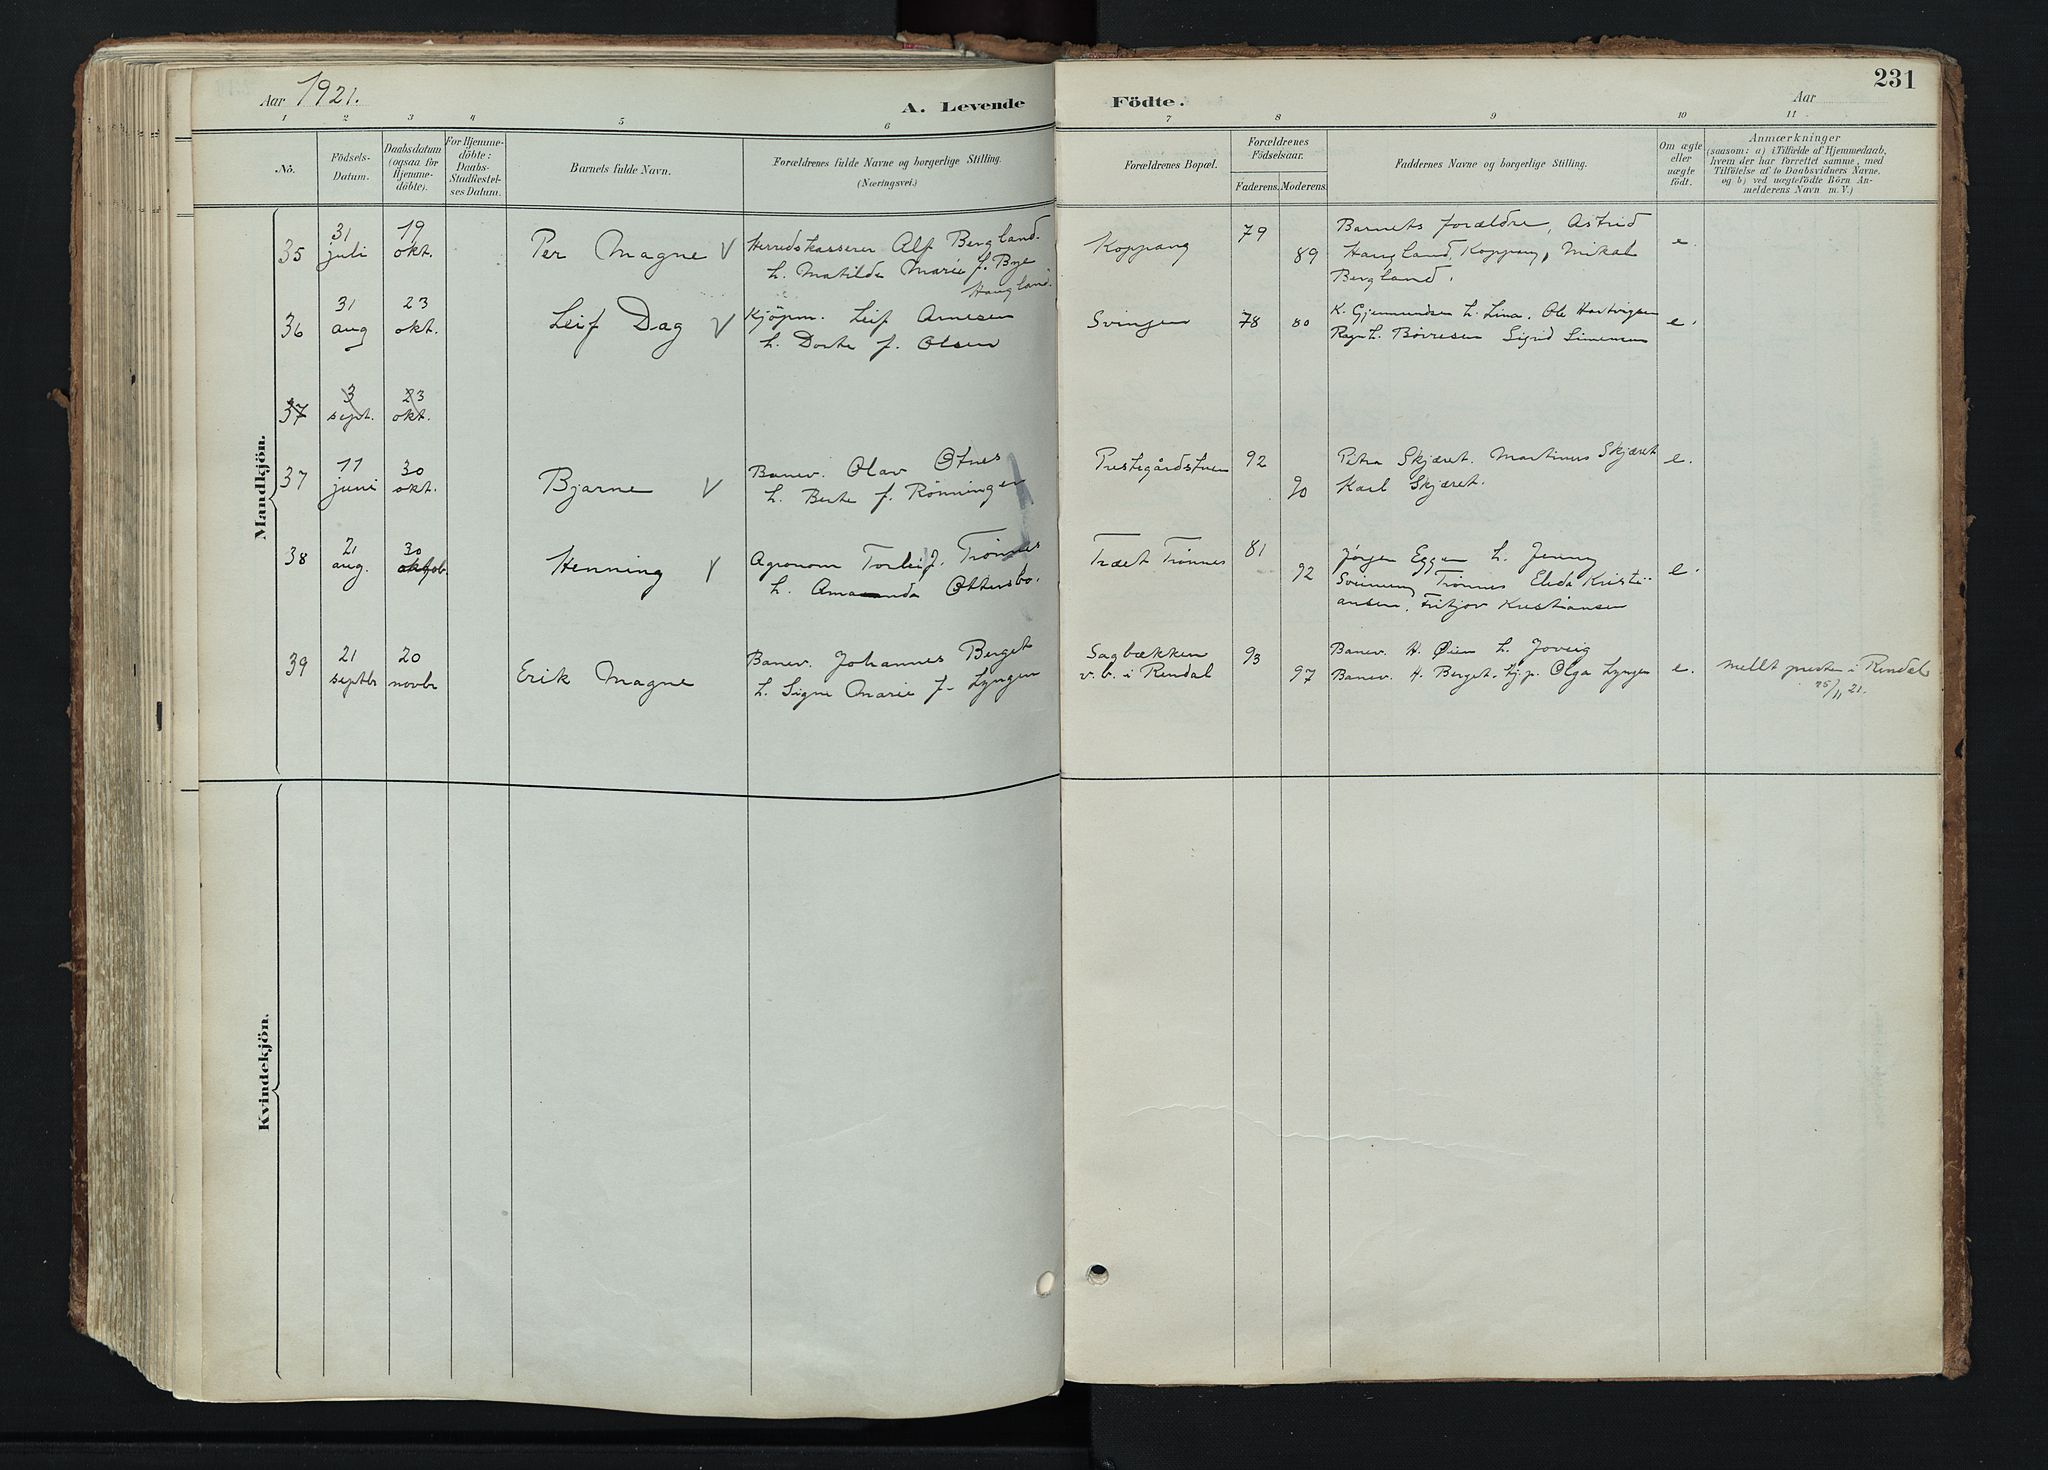 231
Aar 1921. A. Levende Födte. Aar
1 2 3 4 5 6 7 8 9 10 11
No.
Födsels-
Datum.
Daabsdatum
(ogsaa for
Hjemme-
döbte).
For Hjemme-
döbte:
Daabs-
Stadfæstel-
ses Datum.
Barnets fulde Navn.
Forældrenes fulde Navne og borgerlige Stilling.
(Næringsvei.)
Forældrenes Bopæl.
Forældrenes
Födselsaar.
Faderens. Moderens.
Faddernes Navne og borgerlige Stilling.
Om ægte
eller
uægte
födt.
Anmærkninger
(saasom: a) i Tilfælde af Hjemmedaab,
hvem der har forrettet samme, med
Tilföielse af to Daabsvidners Navne,
og b) ved uægtefödte Börn An-
melderens Navn m. V.)
Mandkjön.
35
31
juli
19
okt.
Per Magne V
Herredskasserer Alf Bergland.
h. Matilde Marie f. Bye
Haugland.
Koppang
79
89
Barnets forældre, Astrid
Haugland, Koppang, Mikal
Bergland.
e.
36
31
aug
23
okt.
Leif Dag V
Kjøpm. Leif Arnesen
h. Dorte f. Olsen
Svingen
78 80
K. Gjermundsen h. Lina. Ole Hartvigsen
Ragnh. Børresen Sigrid Simensen
e.
37
3
sept.
23
okt.
37
11
juni
30
okt.
Bjarne V
Banev. Olav Otnes
h. Berte f. Rønningen
Prestegårdstuen
92
90
Petra Skjæret. Martinus Skjæret
Karl Skjæret.
e.
38
21
aug.
30
oktob.
Henning V
Agronom Torleif. Trønnes
h. Amanda Ottersbo.
Træet Trønnes
81
92
Jørgen Eggen h. Jenny
Trønnes Elida Kristi-
ansen, Fritjov Kristiansen
e.
39
21
septbr
20
novbr
Erik Magne
Banev. Johannes Berget
h. Signe Marie f. Lyngen
Sagbækken
v.b. i Rendal
93
97
Banev. H. Øien h. Joveig
Banev. H. Berget. Olga Lyngen
e.
mellt presten i Rendal
25/11 21.
Kvindekjön.